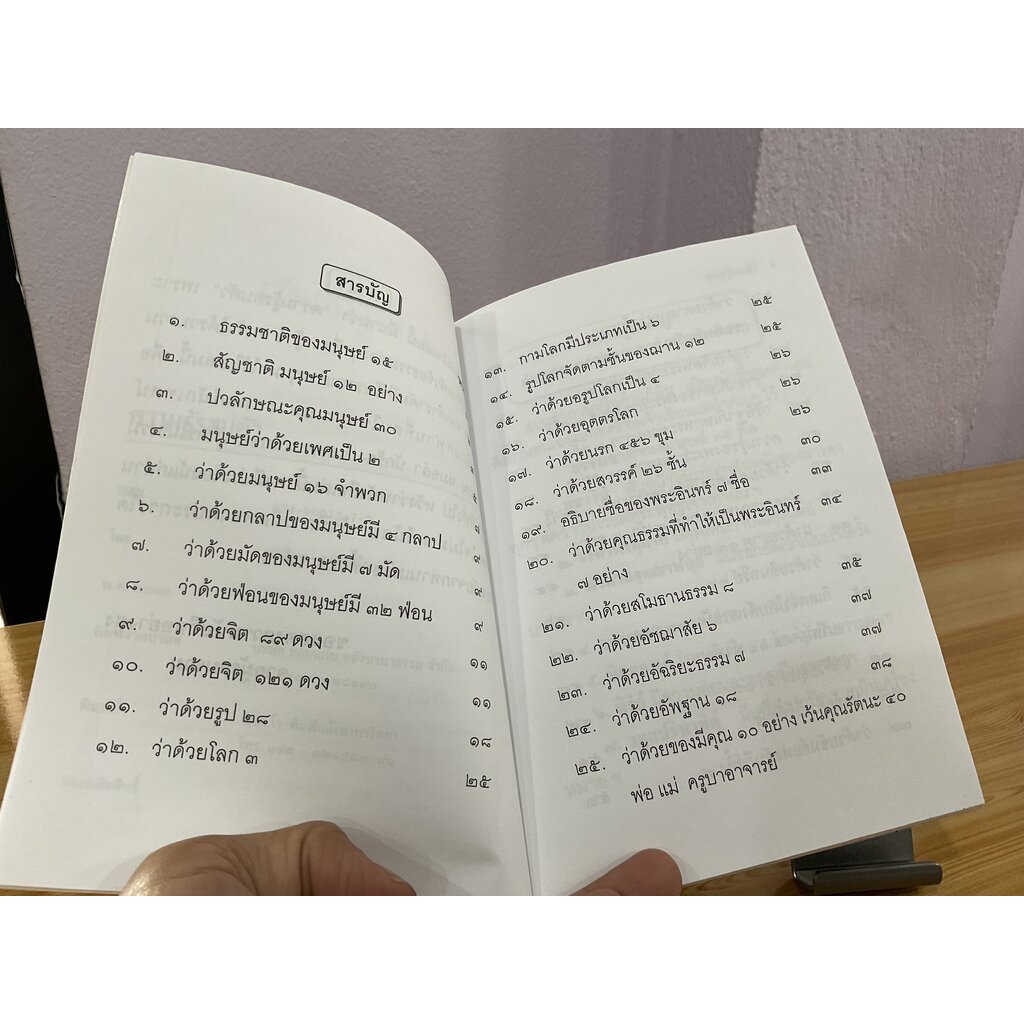 สารบัญ
๑. ธรรมชาติของมนุษย์ ๑๕
๒. สัญชาติ มนุษย์ ๑๒ อย่าง
๓. ปวลักษณะคุณมนุษย์ ๓๐
๔. มนุษย์ว่าด้วยเพศเป็น ๒
๕. ว่าด้วยมนุษย์ ๑๖ จำพวก ๕
๖. ว่าด้วยกลาปของมนุษย์มี ๔ กลาป ๗
๗. ว่าด้วยมัดของมนุษย์มี ๗ มัด ๙
๘. ว่าด้วยฟ่อนของมนุษย์มี ๓๒ ฟ่อน ๙
๙. ว่าด้วยจิต ๘๙ ดวง ๙
๑๐. ว่าด้วยจิต ๑๒๑ ดวง ๑๑
๑๑. ว่าด้วยรูป ๒๘ ๑๑
๑๒. ว่าด้วยโลก ๓ ๑๘
๒๕
๑๓. กามโลกมีประเภทเป็น ๖ ๒๕
๑๔. รูปโลกจัดตามชั้นของฌาน ๑๒ ๒๕
๑๕. ว่าด้วยอรูปโลกเป็น ๔ ๒๖
๑๖. ว่าด้วยอุดตรโลก ๒๖
๑๗. ว่าด้วยนรก ๔๕๖ ขุม ๒๖
๑๘. ว่าด้วยสวรรค์ ๒๖ ชั้น ๓๐
๑๙. อธิบายชื่อของพระอินทร์ ๗ ชื่อ ๓๓
๒๐. ว่าด้วยคุณธรรมที่ทำให้เป็นพระอินทร์ ๓๔
๗ อย่าง
๒๑. ว่าด้วยสโมธานธรรม ๘ ๓๕
๒๒. ว่าด้วยอัชฌาสัย ๖ ๓๗
๒๓. ว่าด้วยอัฉริยะธรรม ๗ ๓๗
๒๔. ว่าด้วยอัพฐาน ๑๘ ๓๘
๒๕. ว่าด้วยของมีคุณ ๑๐ อย่าง เว้นคุณรัตนะ ๔๐
พ่อ แม่ ครูบาอาจารย์